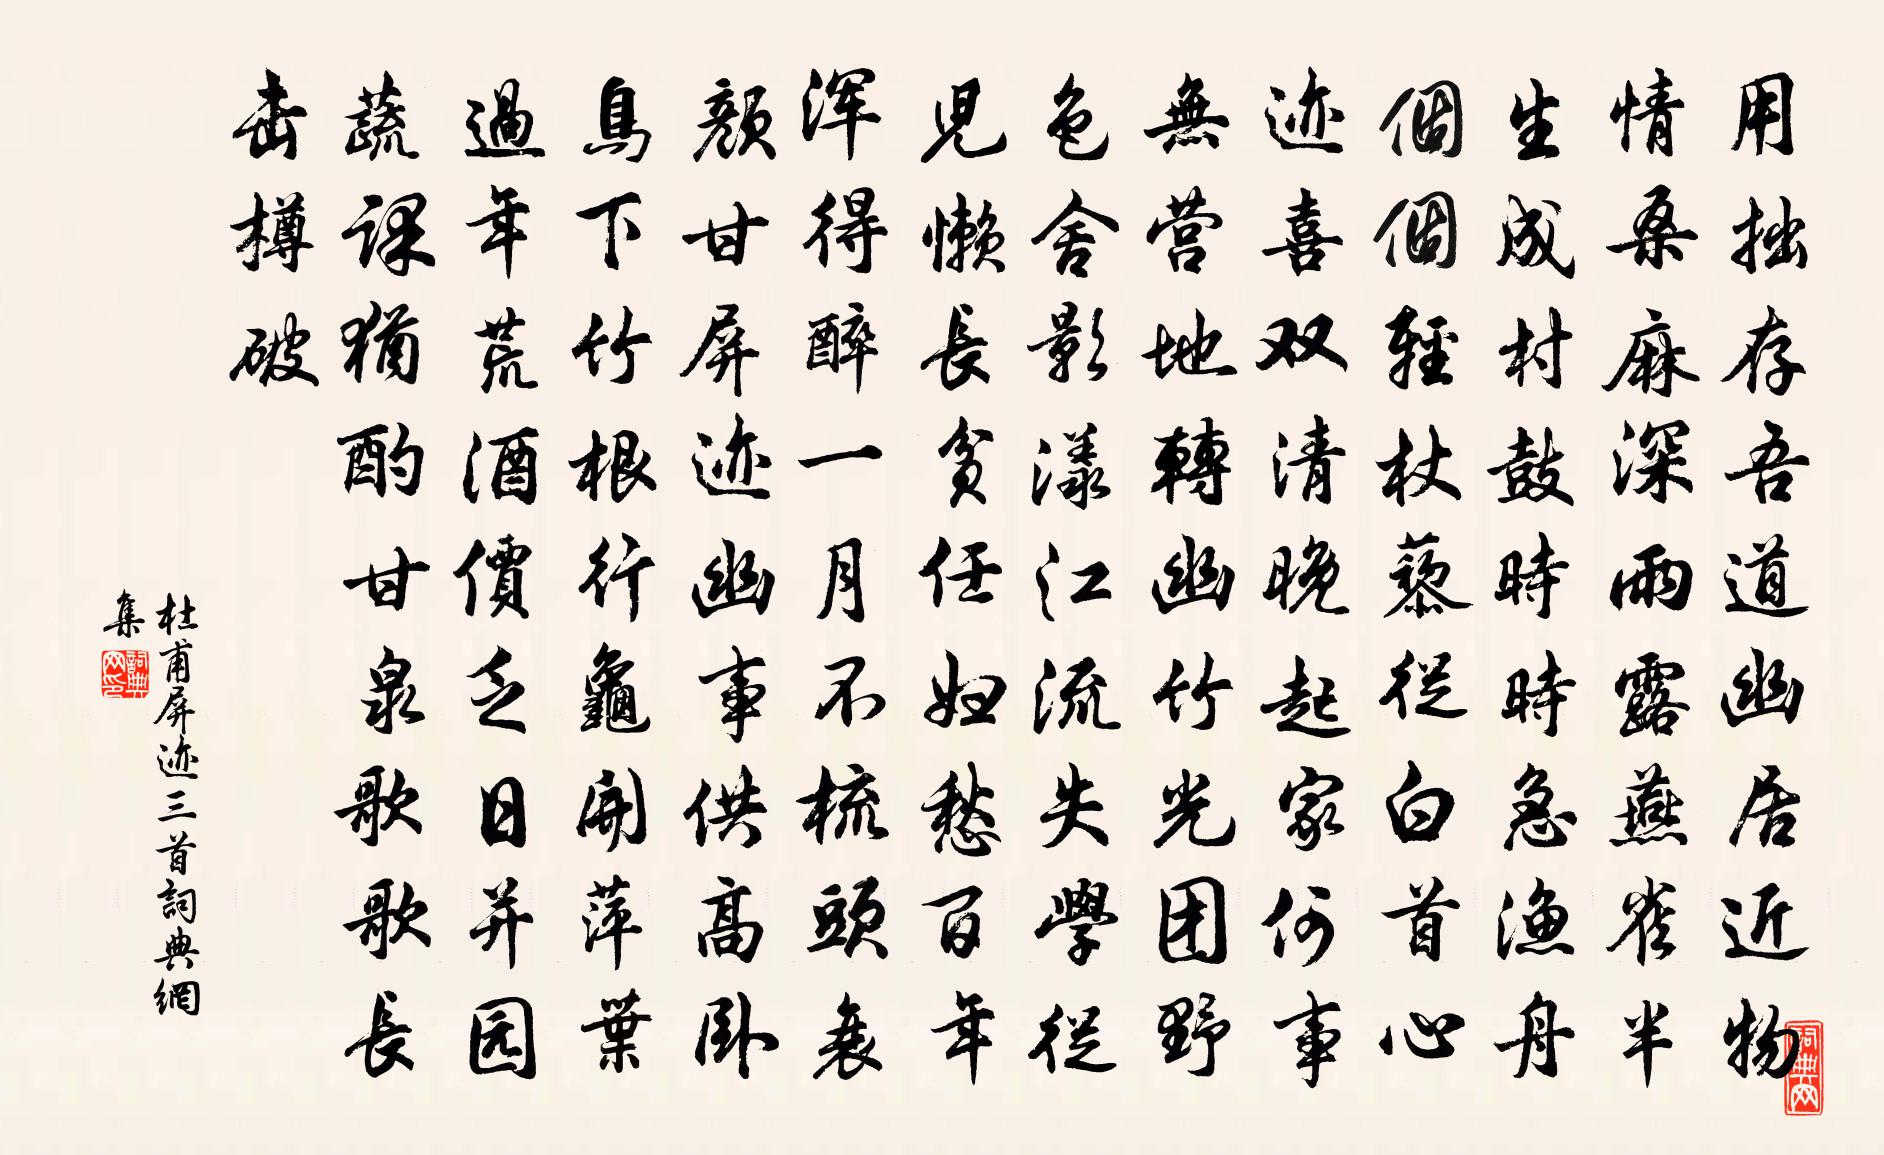 用拙存吾道幽居近物
情桑麻深雨露燕雀半
生成村鼓時時急漁舟
個個輕杖藜從白首心
迹喜双清晚起家何事
無营地轉幽竹光团野
色舍影漾江流失學從
児懒長貧任妇愁百年
浑得醉一月不梳頭衰
顏甘屏迹幽事供高卧
鳥下竹根行龜開萍葉
過年荒酒價乏日并园
蔬课猶酌甘泉歌歌長
击樽破
杜甫屏迹三首詞典網
集
詞典网印
词典网